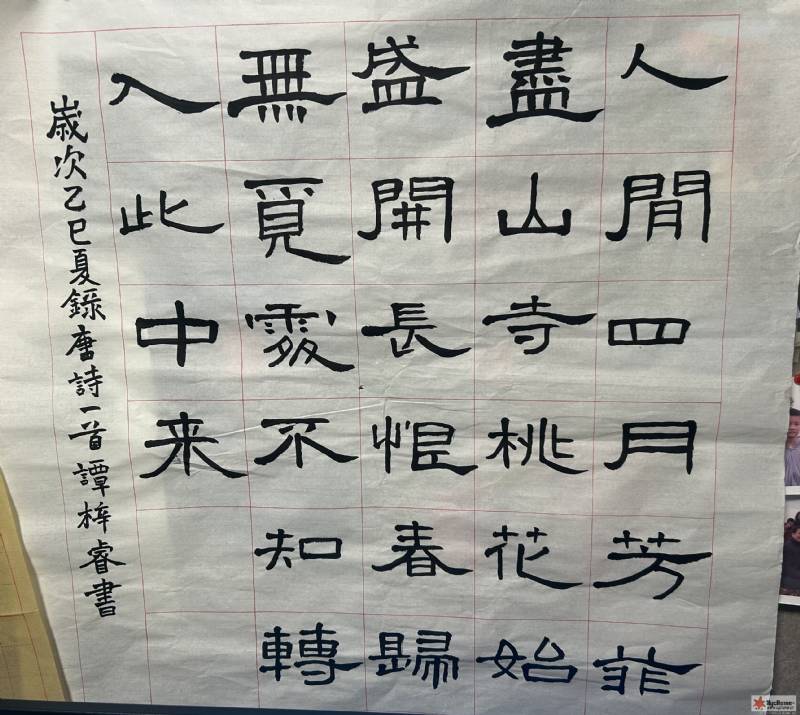 人間四月芳菲
盡山寺桃花始
盛開長恨春歸
無覓處不知轉
入此中来
歲次乙巳夏錄唐詩一首譚梓睿書